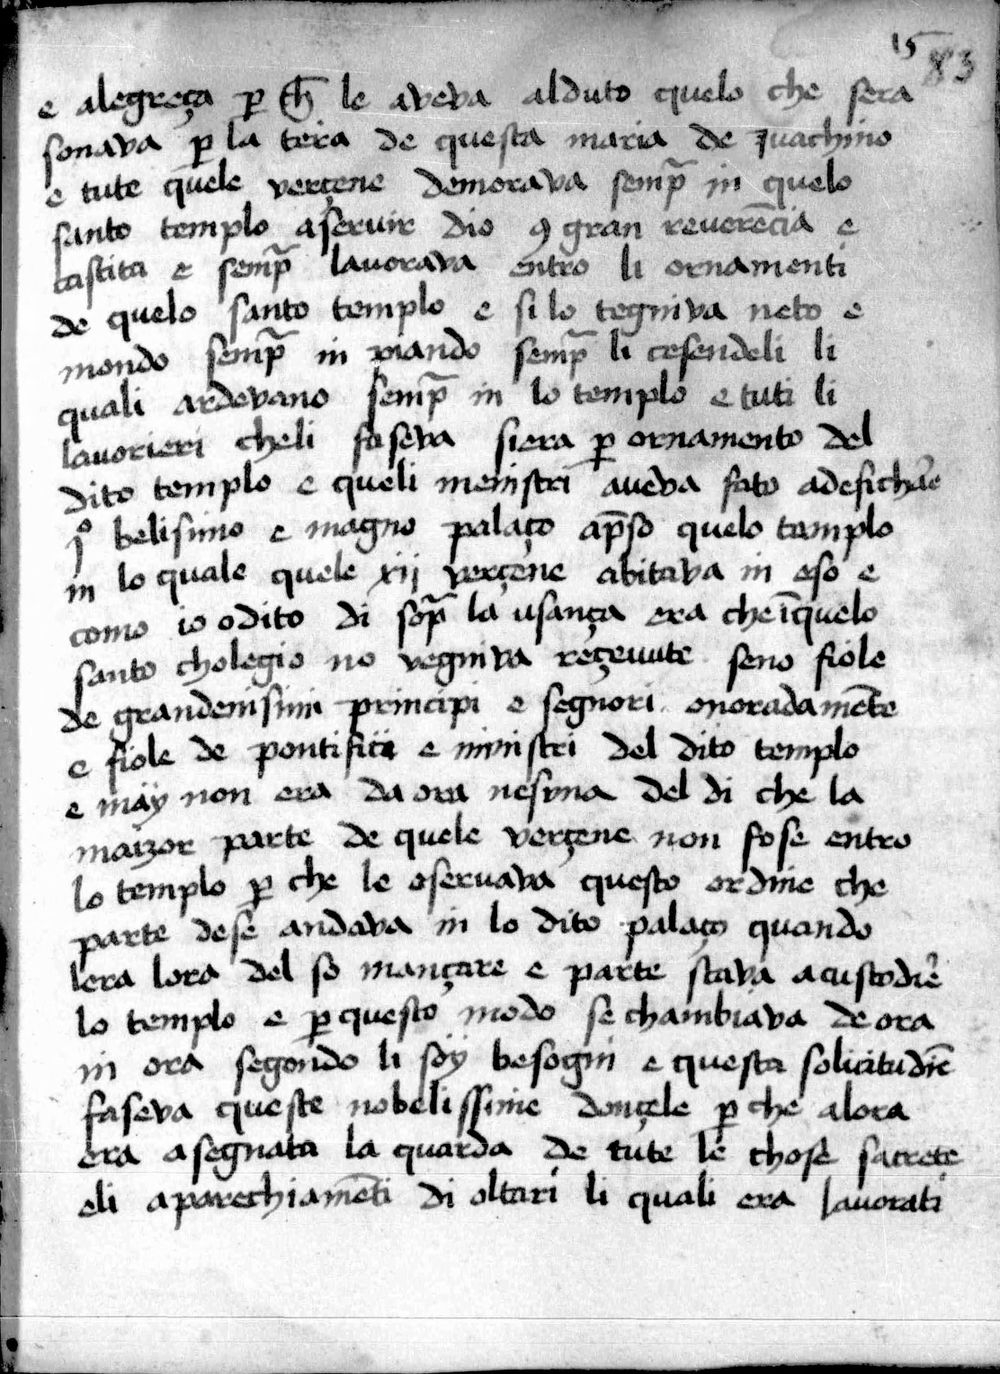 15
83
e alegreça ꝑ ch̄ le aveva alduto quelo che sera
sonava ꝑ la tera de questa maria de Juachino
e tute quele verçene demorava semp̄ in quelo
santo templo aservir dio ꝯ gran reverēcia e
castita e semp̄ lavorava entro li ornamenti
de quelo santo templo e si lo tegniva neto e
mondo semp̄ in piando semp̄ li cesendeli li
quali ardevano semp̄ in lo templo e tuti li
lavorieri cheli faseva siera ꝑ ornamento del
dito templo e queli menistri aveva fato adefichař
jº belisimo e magno palaço ap̄so quelo templo
in lo quale quele xij verçene abitava in eso e
como io odito di sop̄ la usança era cheīquelo
santo cholegio no vegniva reçevute seno fiole
de grandenisimi principi e segnori onoradamēte
e fiole de pontifiti e ministri del dito templo
e may non era da ora nesuna del di che la
maizor parte de quele verçene non fose entro
lo templo ꝑ che le oservava questo ordine che
parte dese andava in lo dito palaço quando
lera lora del so mançare e parte stava acustodiř
lo templo e ꝑ questo modo se chambiava de ora
in ora segondo li soy besogni e questa solicitudīe
faseva queste nobelissime donçele ꝑ che alora
era asegnata la quarda de tute le chose sacrete
eli aparechiamēti di oltari li quali era lavorati